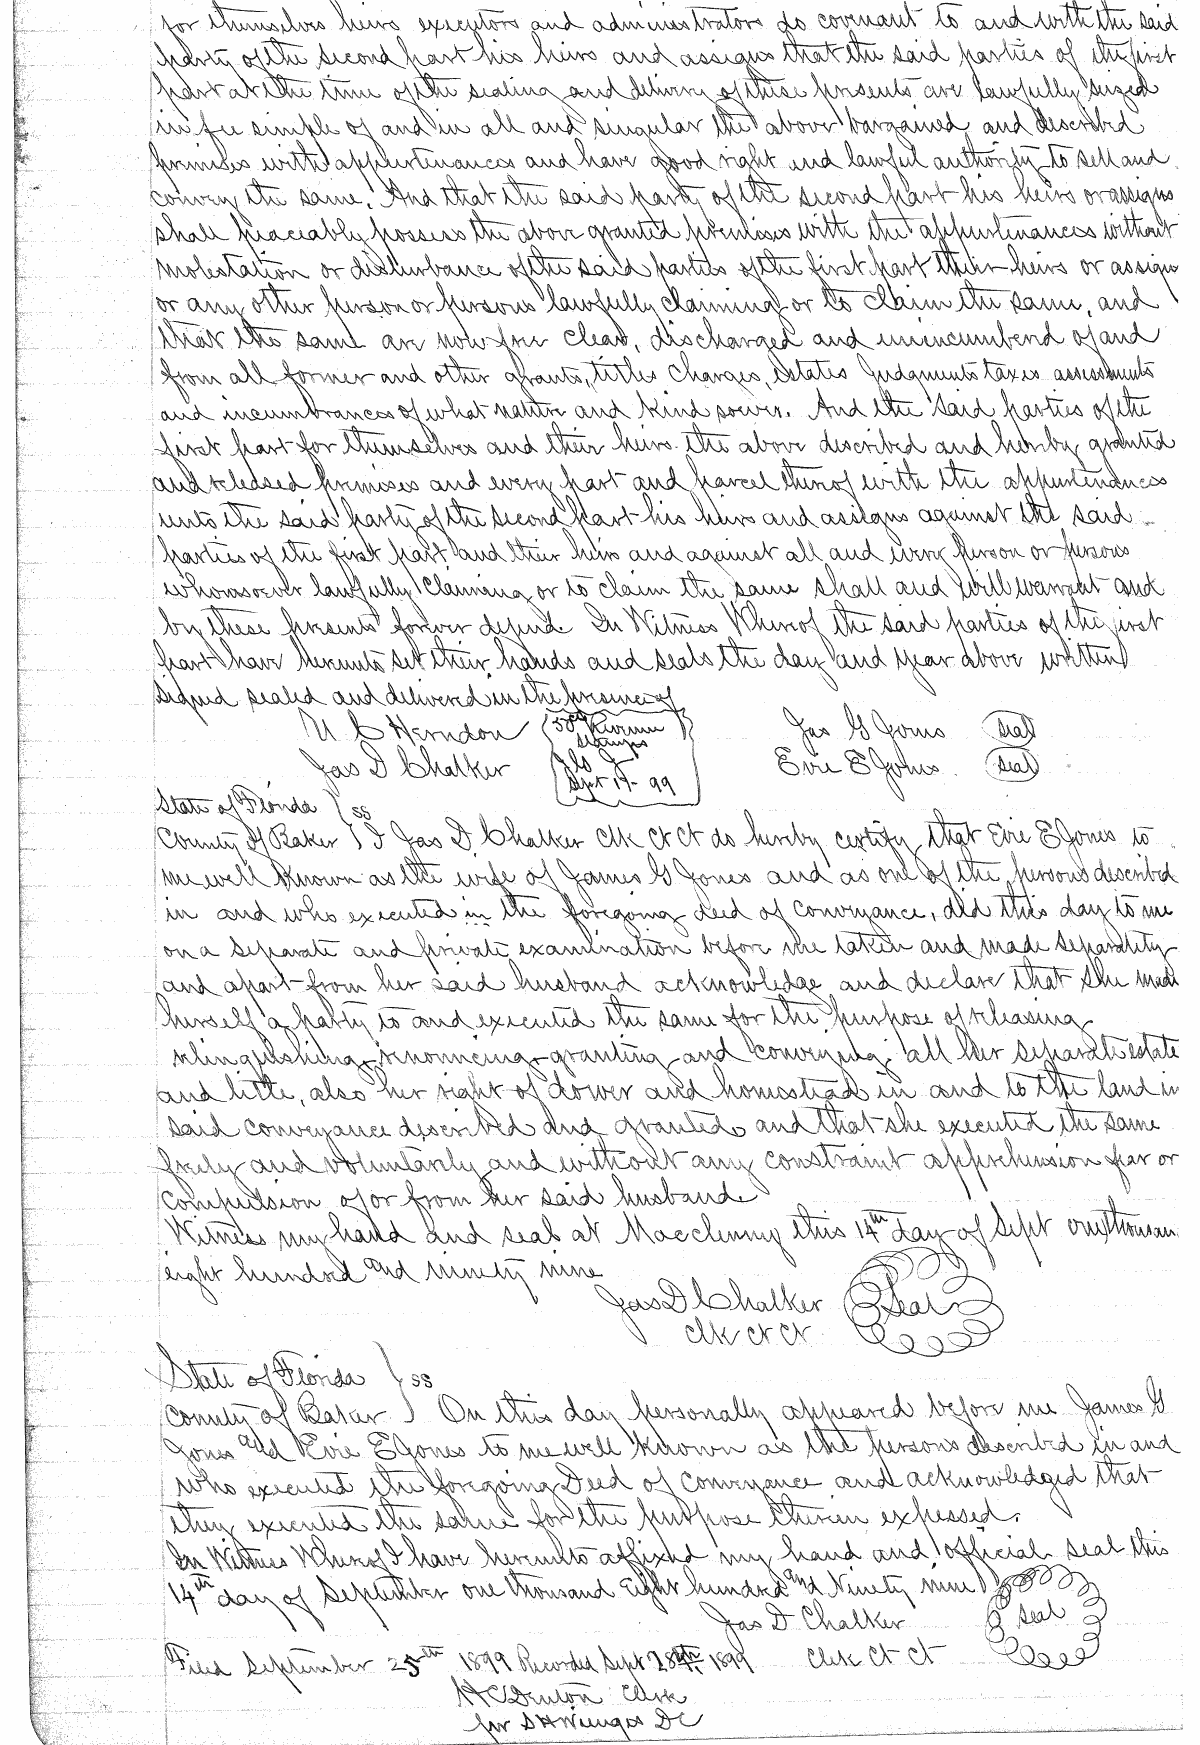 for themselves heirs executors and administrators do covenant to and with the said
party of the second part his heirs and assigns that the said parties of the first
part at the time of the sealing and delivery of these presents are lawfully seized
in fee simple of and in all and singular the above bargained and described
premises with appertenances and have good right and lawful authority to sell and
convey the same. And that the said party of the second part his heirs or assigns
shall peaceably possess the above granted premises with the appurtenances without
molestation or disturbance of the said parties of the first part their heirs or assigns
or any other person or persons lawfully claiming or to claim the same, and
that the same are now free clear, discharged and unincumberd of and
from all former and other grants, titles charges, estates Judgments taxes assessments
and incumbrances of what nature and kind soever. And the said parties of the
first part for themselves and their heirs the above described and hereby granted
and released premises and every part and parcel thereof with the appurtenances
unto the said party of the second part his heirs and assigns against the said
parties of the first part and their heirs and against all and every person or persons
whomsoever lawfully claiming or to claim the same shall and will warrant and
by these presents forever defend. In Witness Whereof the said parties of the first
part have hereunto set their hands and seals the day and year above written
Signed sealed and delivered in the presence of
U C Herndon
50cts Revenue Stamps
Jas G Jones seal
Jas D Chalker
J G J
Sept 14 - 99
Evie E Jones. seal
State of Florida ) ss
County of Baker ) I Jas D Chalker Clk Ct Ct do hereby certify that Evie E Jones to
me well known as the wife of James G Jones and as one of the persons described
in and who executed in the foregoing deed of conveyance, did this day to me
on a separate and private examination before me taken and made separately
and apart from her said husband acknowledge and declare that she made
herself a party to and executed the same for the purpose of releasing
relinquishing, renouncing, granting and conveying all her separate estate
and title, also her right of dower and homestead in and to the land in
said conveyance described and granted and that she executed the same
freely and voluntarily and without any constraint apprehension fear or
compulsion of or from her said husband.
Witness my hand and seal at Macclenny this 14th day of Sept one thousan
eight hundred and ninety nine
Jas D Chalker Seal
Clk Ct Ct
State of Florida ) ss
County of Baker ) On this day personally appeared before me James G
Jones and Evie E Jones to me well known as the persons described in and
who executed the foregoing Deed of conveyance and acknowledged that
they executed the same for the purpose therein expessed.
In Witness Whereof I have hereunto affixed my hand and official seal this
14th day of September one thousand Eight hundred and Ninety nine
Jas D Chalker seal
Filed September 25th 1899 Recorded Sept 28th 1899 Clek Ct Ct
H C Denton Clerk
per DC